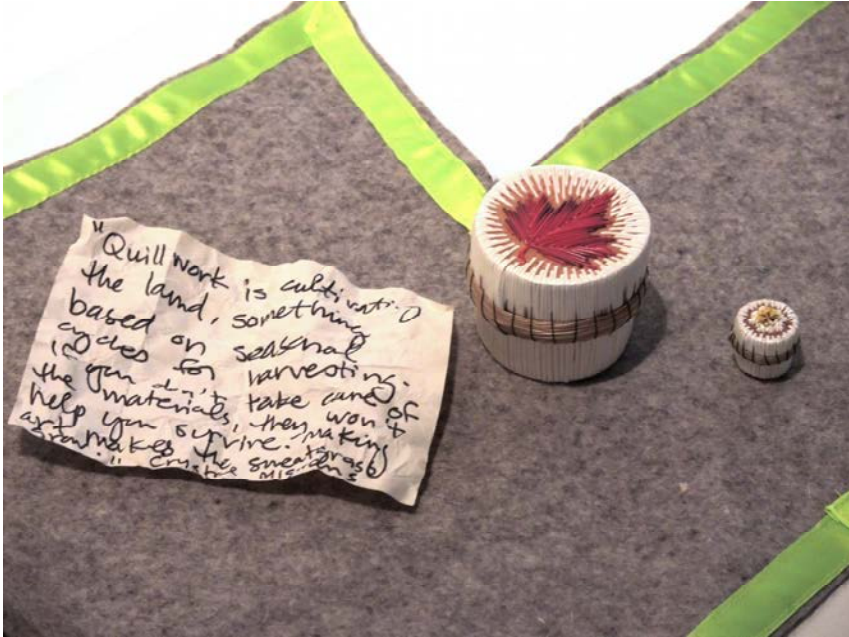 "Quill work is cultivating
the land, something
based on seasonal
cycles for harvesting.
if you don't take care of
the materials, they won't
help you survive. making
art makes the sweetgrass
grow."